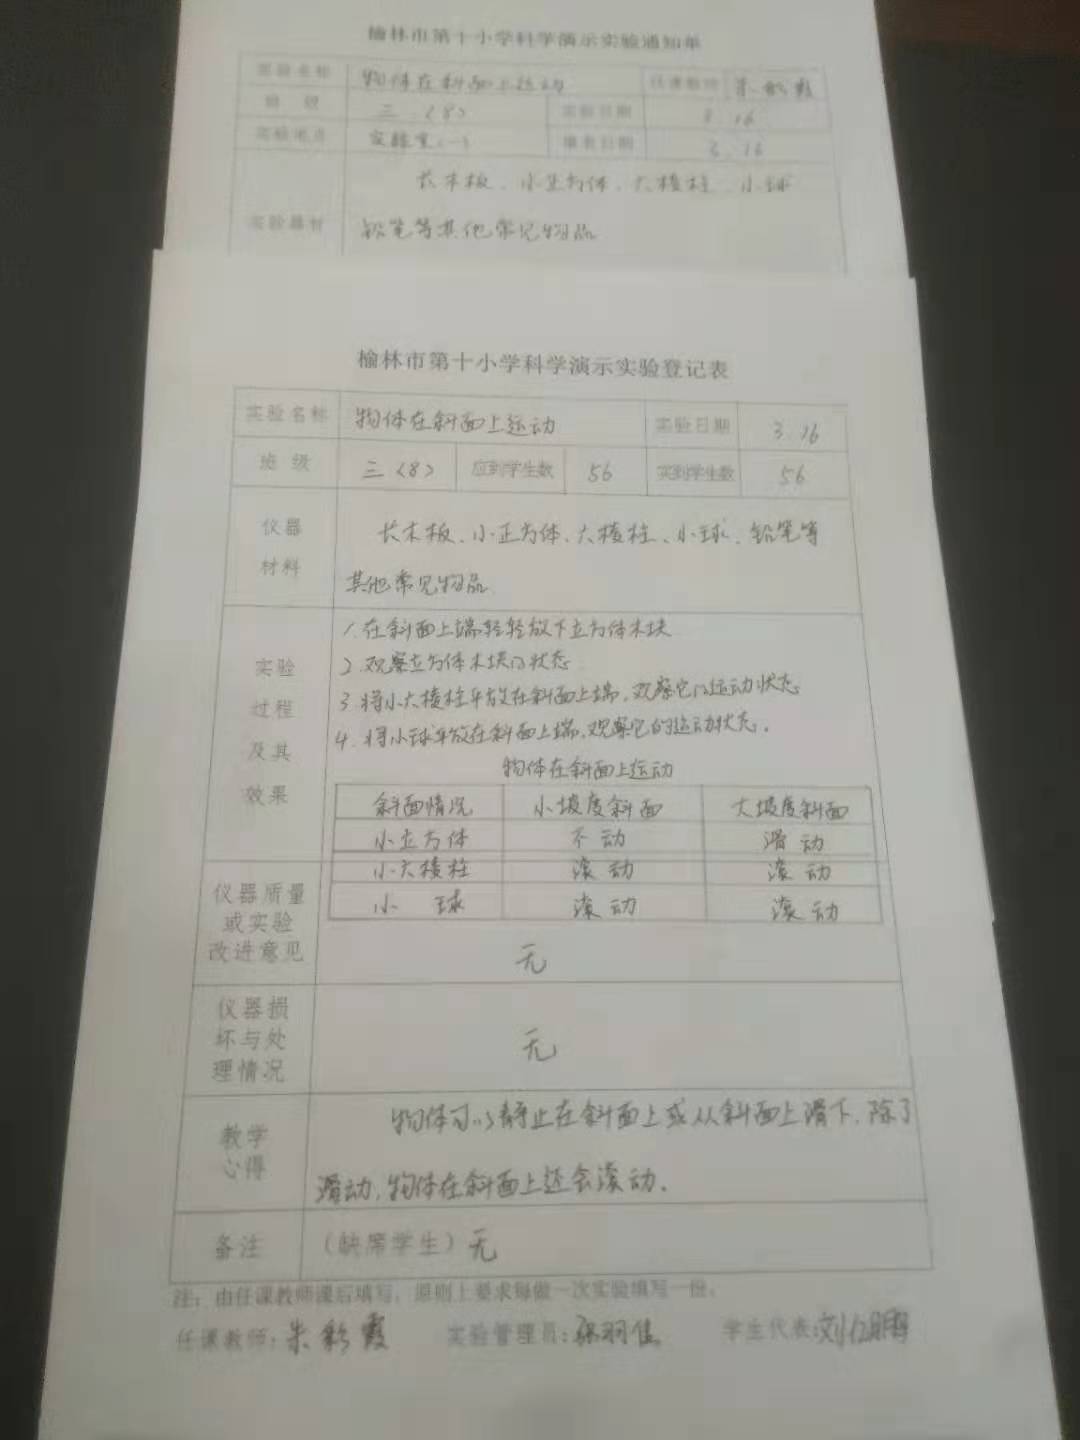 榆林市第十小学科学演示实验通知单
实验名称 物体在斜面上运动 任课教师 朱彩霞
班 级 三（8） 实验日期 3.16
实验地点 实验室（一） 填表日期 3.16
长木板、小正方体、六棱柱、小球
实验器材 铅笔等其他常见物品
榆林市第十小学科学演示实验登记表
实验名称 物体在斜面上运动 实验日期 3.16
班 级 三（8） 应到学生数 56 实到学生数 56
仪器 长木板、小正方体、六棱柱、小球、铅笔等
材料 其他常见物品
1.在斜面上端轻轻放下立方体木块
实验 2.观察立方体木块的状态
过程 3.将小六棱柱平放在斜面上端,观察它的运动状态
及其 4.将小球平放在斜面上端,观察它的运动状态.
物体在斜面上运动
效果 斜面情况 小坡度斜面 大坡度斜面
小立方体 不动 滑动
小六棱柱 滚动 滚动
仪器质量 小 球 滚动 滚动
或实验
改进意见 无
仪器损
坏与处 无
理情况
教学 物体可以静止在斜面上或从斜面上滑下,除了
心得 滑动,物体在斜面上还会滚动.
备注 （缺席学生）无
注：由任课教师课后填写，原则上要求每做一次实验填写一份。
任课教师:朱彩霞 实验管理员: 学生代表: